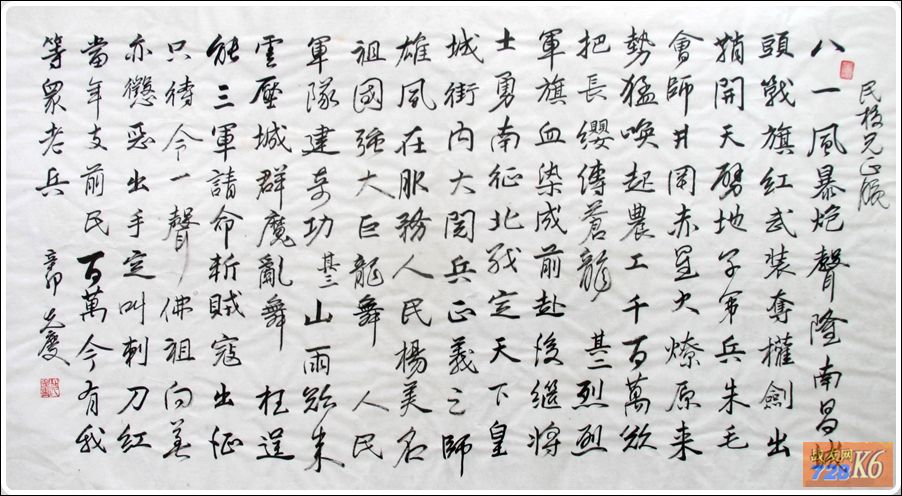 民橋兄正腕
八一風暴炮聲隆南昌城
頭戰旗紅武裝奪權劍出
鞘開天劈地子弟兵朱毛
會師井岡赤星火燎原来
勢猛喚起農工千百萬欲
把長纓縛蒼龍 其二 烈烈
軍旗血染成前赴後继将
士勇南征北戰定天下皇
城街内大閱兵正義之師
雄風在服務人民楊美名
祖國強大巨龍舞 人民
軍隊建奇功 其三 山雨欲来
雲壓城群魔亂舞 枉逞
能三軍請命斬賊寇出征
只待令一聲 佛祖向善
亦懲惡出手定叫刺刀紅
當年支前民百萬今有我
等眾老兵 辛卯 光慶
战友网
728 K6